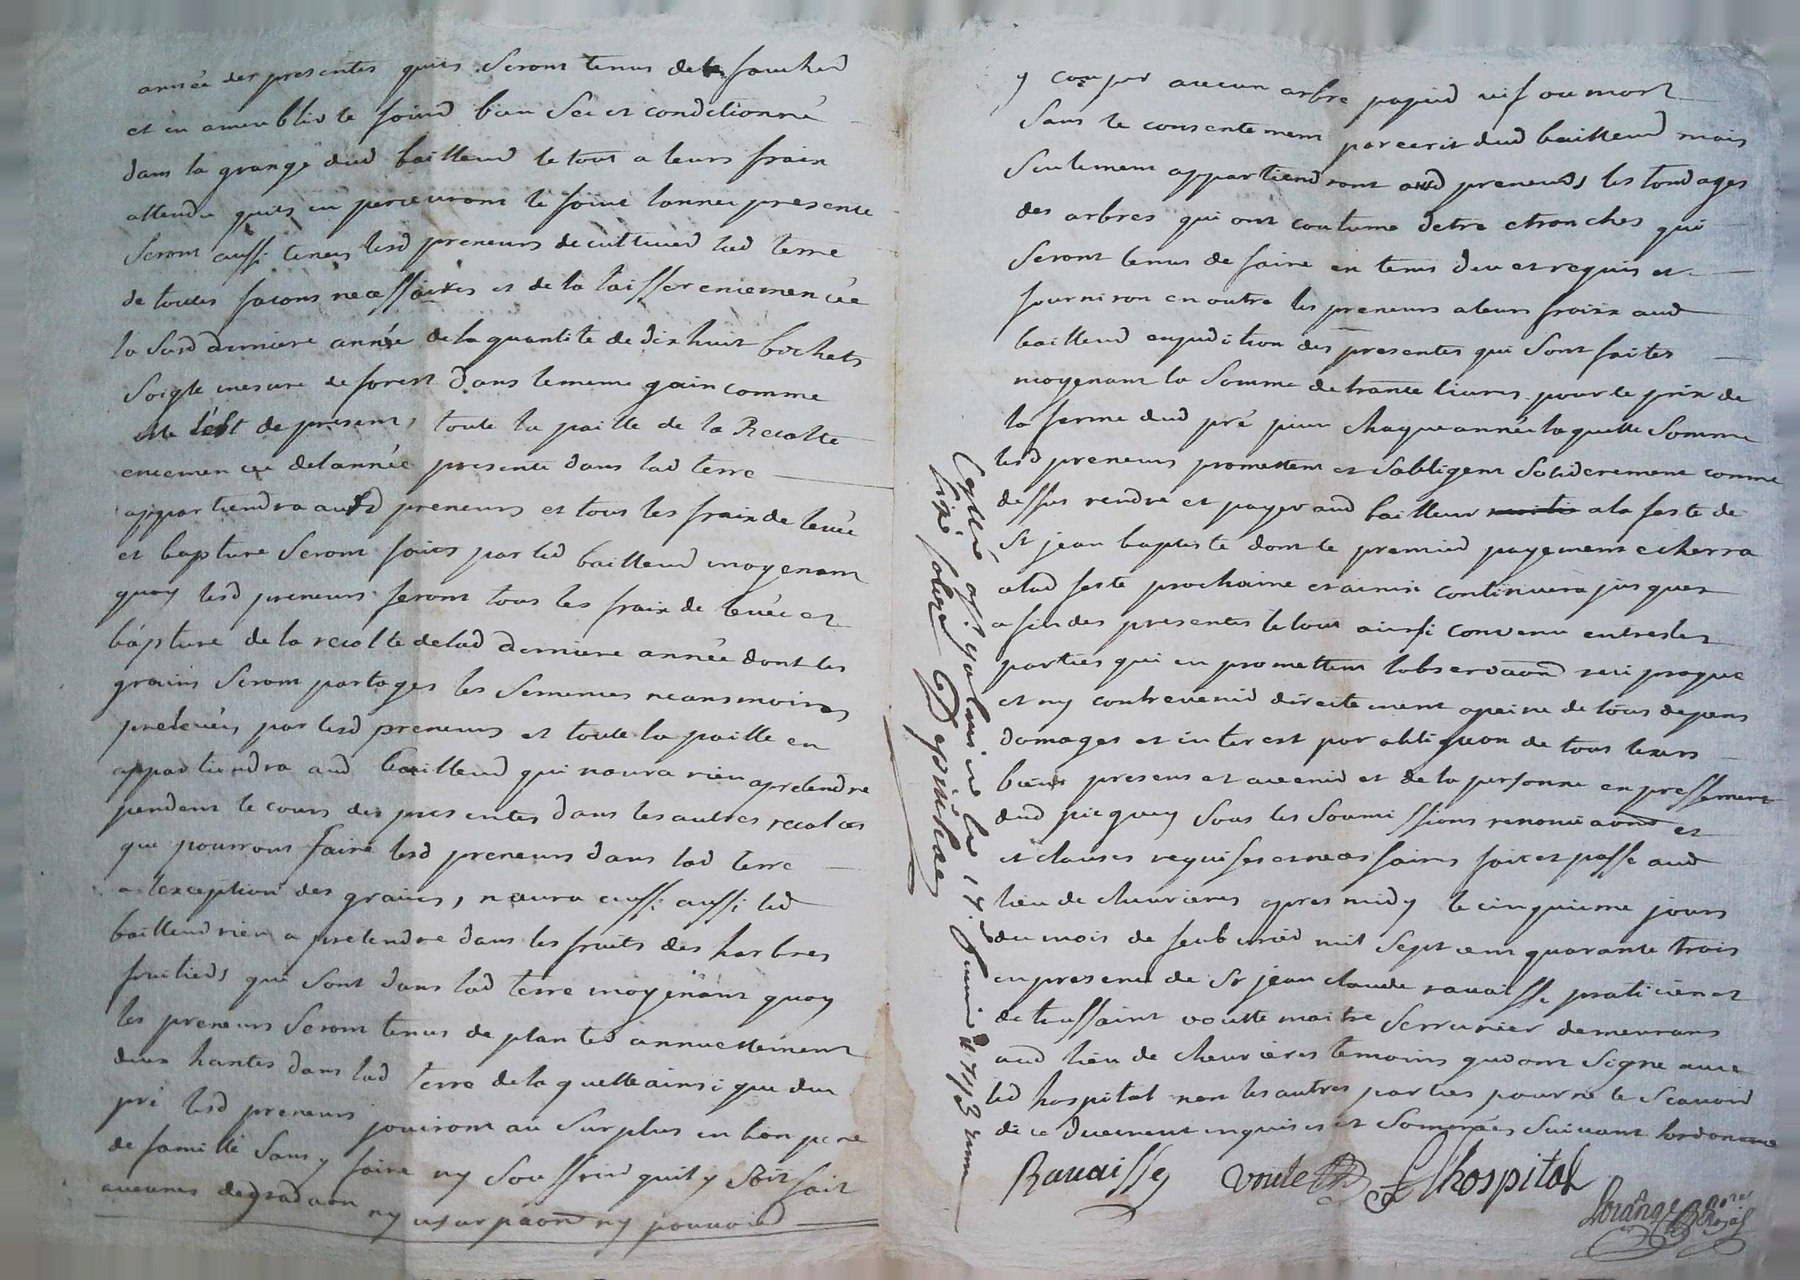 année des presentes quils seront tenus de faucher
et en ameublir le foind bien sec et conditionné
dans la grange dud bailleur le tout a leurs fraix
attendu quils en perceuront le foint lannée presente
seront aussi tenus lesd preneurs de cultiver lad terre
de toutes facons necessaires et de la laisser encemencée
la susd derniere année de la quantite de dix huit bichets
soigle mesure de forest dans le meme gain comme
elle lest de present, toute la paille de la Recolte
encemencée de lannée presente dans lad terre
appartiendra ausd preneurs et tous les fraix de levée
et bapture seront faits par led bailleur moyenant
quoy lesd preneurs feront tous les fraix de levée et
bapture de la recolte de lad derniere année dont les
grains seront partages les semences neansmoins
prelevées par lesd preneurs et toute la paille en
appartiendra aud bailleur qui naura rien a pretendre
pendent le cours des presentes dans les autres recoltes
que pourront faire lesd preneurs dans lad terre
a lexception des grains, naura aussi aussi led
bailleur rien a pretendre dans les fruits des harbres
fruitiers qui sont dans lad terre moyenant quoy
les preneurs seront tenus de planter annuellement
deux hantes dans lad terre de laquelle ainsi que du
pré lesd preneurs jouiront au surplus en bon pere
de famille sans y faire ny souffrir quil y soit fait
aucunes degradaon ny usurpaon ny pouvoir
y couper aucun arbre par pied vif ou mort
sans le consentement par ecrit dud bailleur mais
seulement appartiendront ausd preneurs les tondages
des arbres qui ont coutume detre etronches qui
seront tenus de faire en tems deu et requis et
fourniron en outre les preneurs a leurs fraix aud
bailleur expedition des presentes qui sont faites
moyenant la somme de trante livres pour le prix de
la ferme dud pré pour chaque année laquelle somme
lesd preneurs promettent et sobligent soliderement comme
dessus rendre et payer aud bailleur a la feste de
St jean baptiste dont le premier payement echerra
a lad feste prochaine et ainsi continuera jusques
a fin des presentes le tout ainsi convenu entre les
parties qui en promettent lobservaon reciproque
et ny contrevenir directement a peine de tous depens
domages et interest par obligaon de tous leurs
biens presens et avenir et de la personne expressement
dud picquey sous les soumissions renonciaons et
et clauses requises et necessaires fait et passé aud
lieu de chevrieres apres midy le cinquieme jours
du mois de feubvrier mil sept cent quarante trois
en presence de Sr jean claude ravaisse praticien et
de toussaint voutte maitre serrurier demeurans
aud lieu de chevrieres temoins qui ont signe avec
led hospital non les autres parties pour ne le scavoir
de ce duement enquis et sommées suivant lordonance
Ravaisse voute Lhospital
Controllé a St Galmier le 17 fevrier 1743 reçu
six sols Depinhac